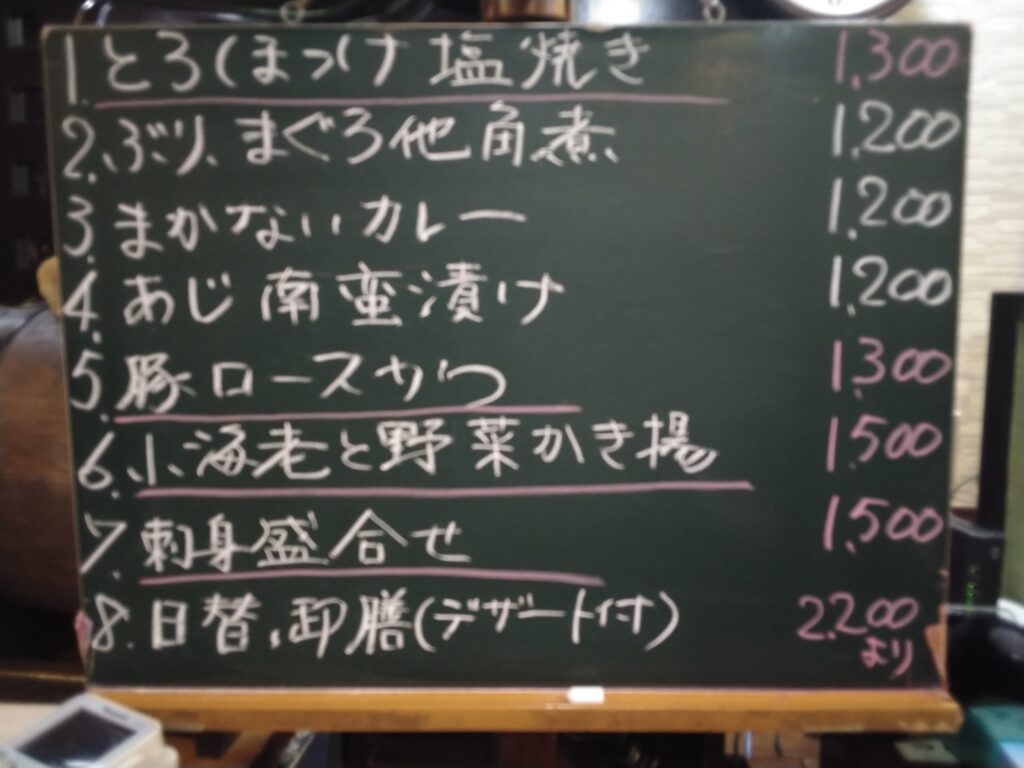 1. とろほっけ 塩焼き 1,300
2. ぶり、まぐろ他角煮 1,200
3. まかないカレー 1,200
4. あじ南蛮漬け 1,200
5. 豚ロースかつ 1,300
6. 小海老と野菜かき揚 1,500
7. 刺身盛合せ 1,500
8. 日替、御膳(デザート付) 2,200
より